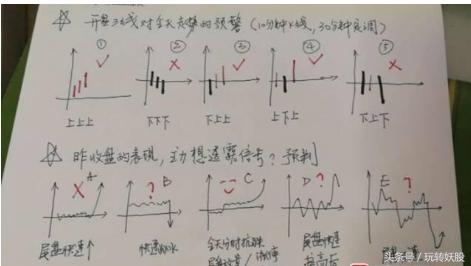 开盘3线对全天走势的预警（10分钟K线，30分钟完调）
① ② ③ ④ ⑤
上上上 下下下 下上上 上下上 下上下
昨收盘的表现，主力想透露信号？预判
A B C D E
尾盘快速↑ 快速跳水 全天分时抗跌 尾盘快速
头条号／玩转妖股